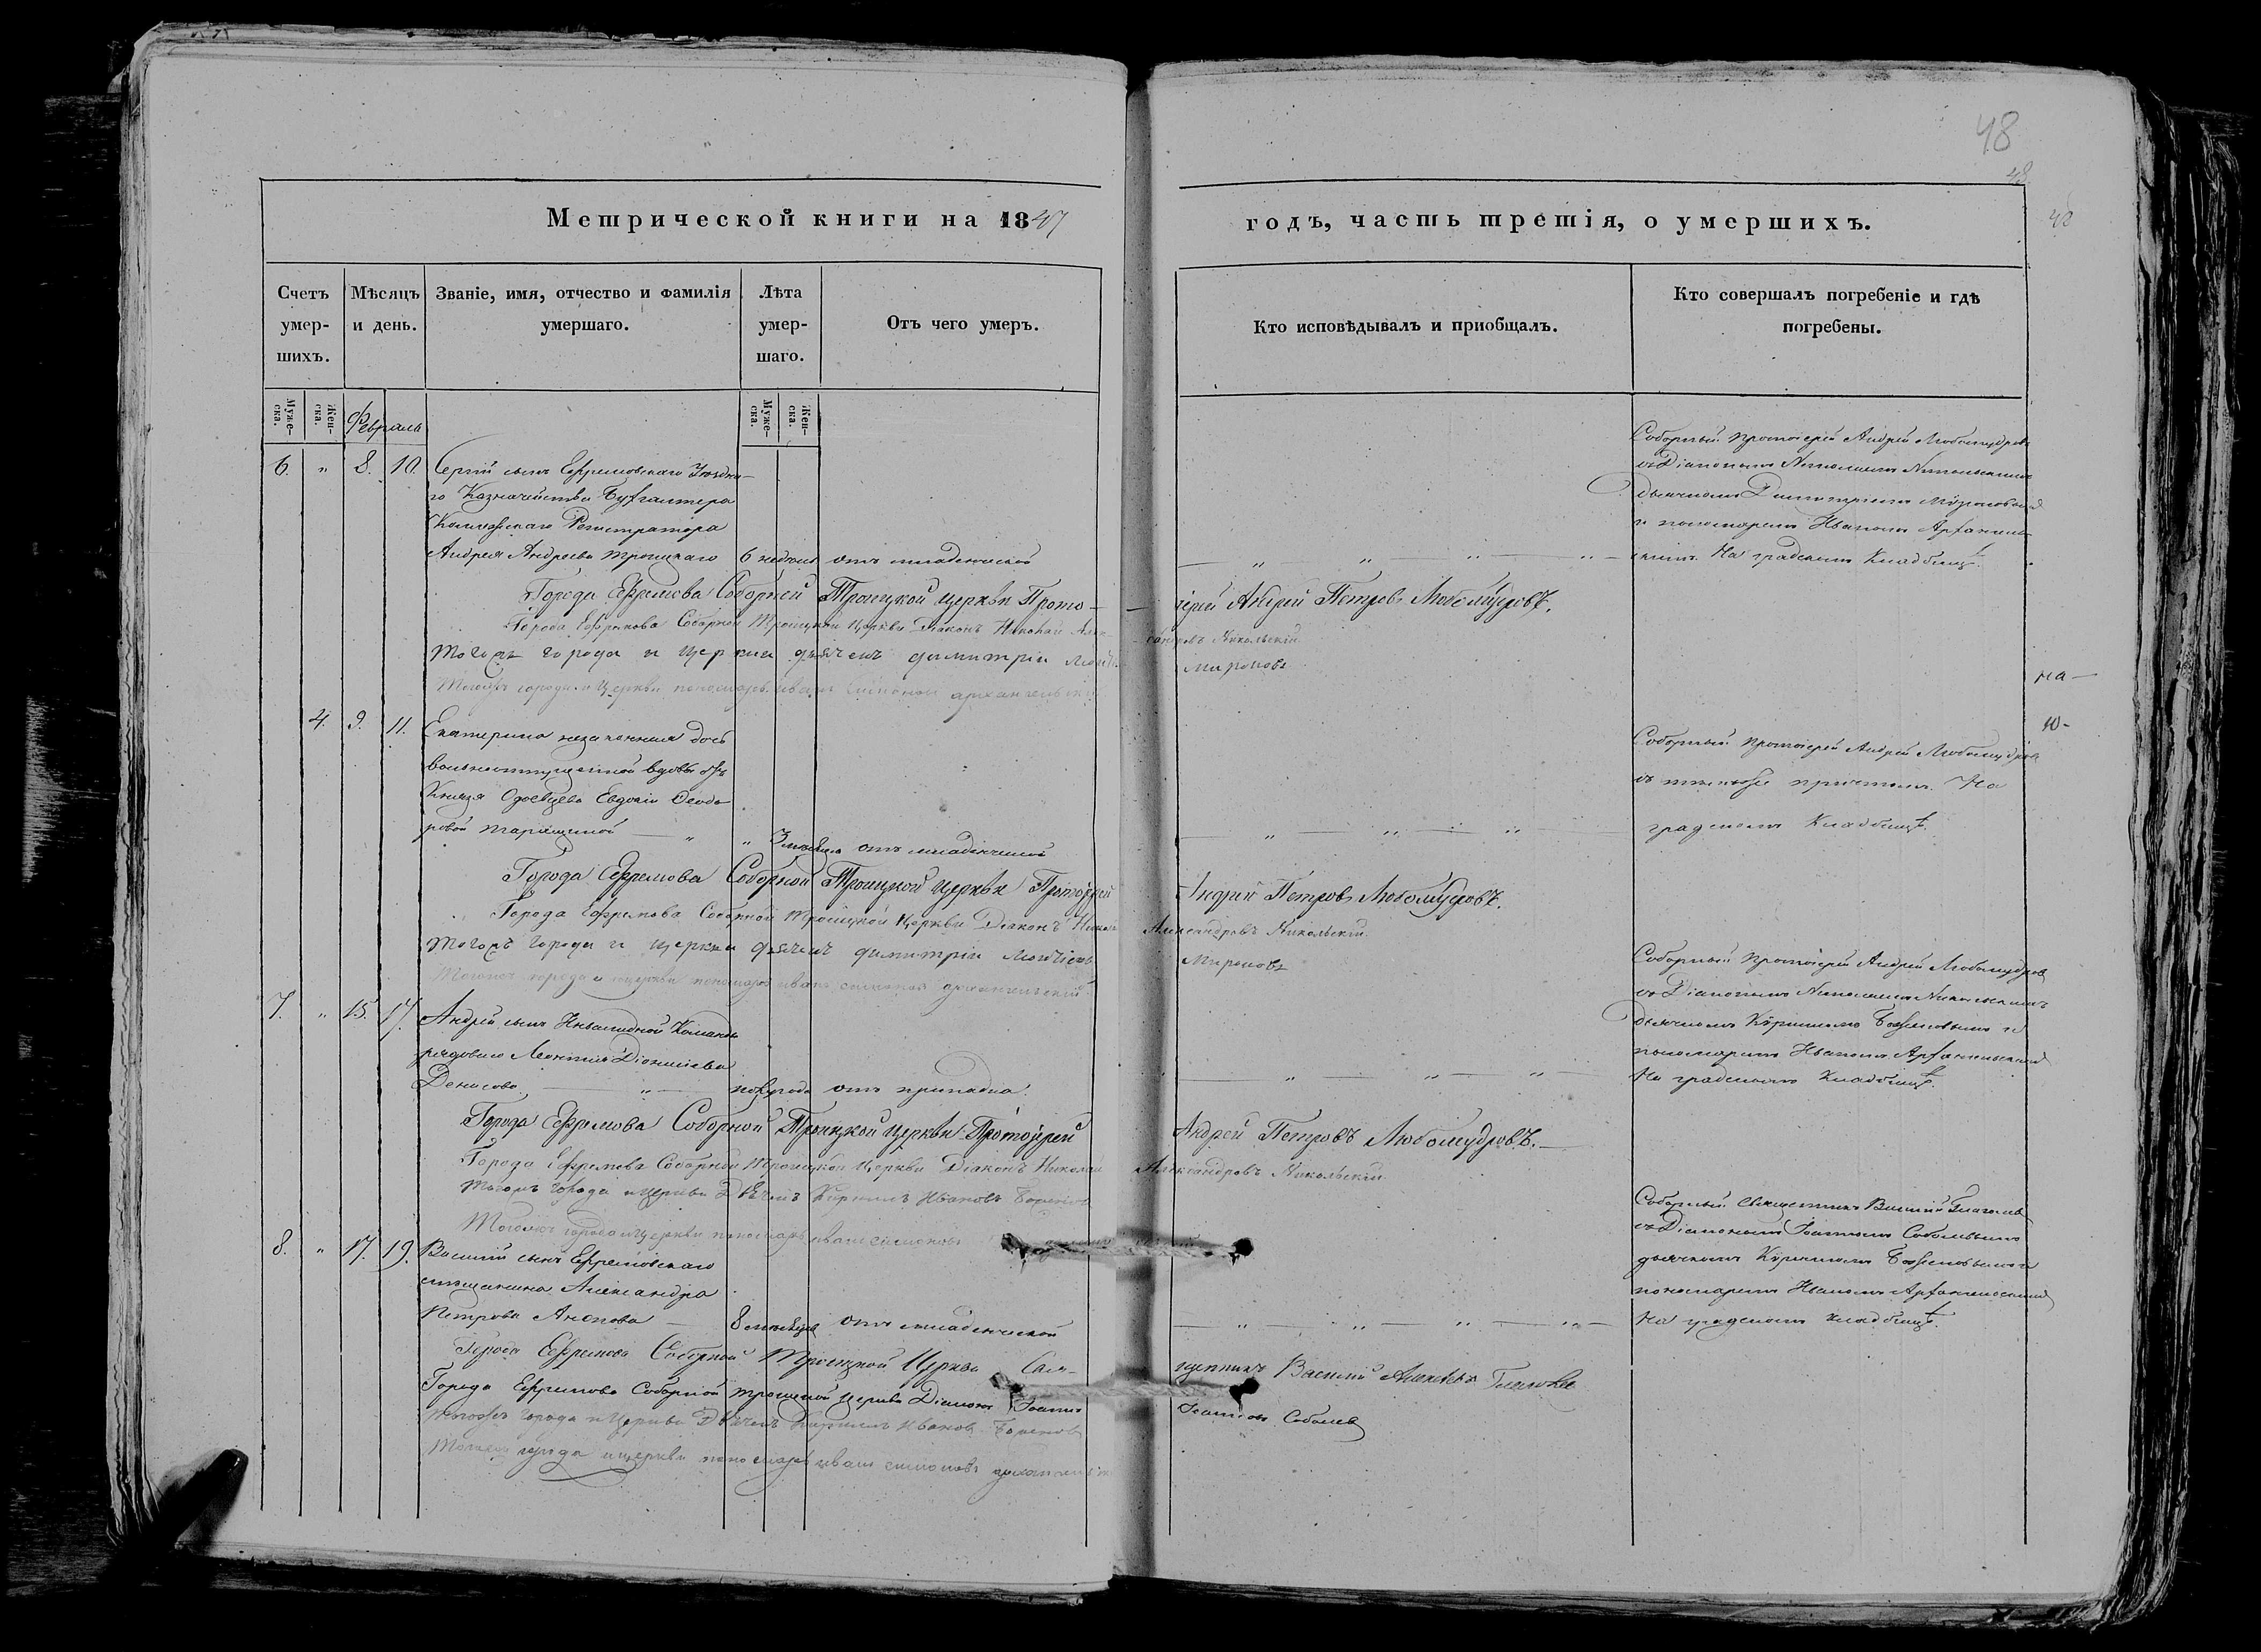 48
48
48
Метрической книги на 1847
годъ, часть третія, о умершихъ.
Счетъ умер-шихъ.
Мѣсяцъ и день.
Званіе, имя, отчество и фамилія умершаго.
Лѣта умер-шаго.
Отъ чего умеръ.
Кто исповѣдывалъ и приобщалъ.
Кто совершалъ погребеніе и гдѣ погребены.
Муже-ска.
Жен-ска.
Муже-ска.
Жен-ска.
Февраль
6. " 8. 10. Сергій сынъ Ефремовскаго Уѣздна-
го Казначейства Бухгалтера
Коллежскаго Регистратора
Андрея Андреева Троицкаго 6 недѣль отъ младенческой
Соборный протоіерей Андрей Любомудровъ
съ Діакономъ Николаемъ Никольскимъ
дьячкомъ Димитріемъ Мироновымъ
и пономаремъ Иваномъ Архангель-
скимъ. На градскомъ Кладбищѣ.
Города Ефремова Соборной Троицкой церкви Прото-
іерей Андрей Петровъ Любомудровъ.
Города Ефремова Соборной Троицкой Церкви Діаконъ Николай Алек-
сандровъ Никольскій
Тогожъ города и церкви дьячекъ димитрій
Мироновъ
Тогожъ города и Церкви пономарь иванъ симоновъ архангельскій
на
ю-
4. 9. 11. Екатерина незаконная дочь
вольноотпущенной вдовы отъ
Князя Евдокіи Ѳеодо-
ровой
" 3 отъ младенческой
Соборный протоіерей Андрей Любомудровъ
съ тѣмъ же причтомъ. На
градскомъ Кладбищѣ.
Города Ефремова Соборной Троицкой церкви Протоіерей
Андрей Петровъ Любомудровъ.
Города Ефремова Соборной Троицкой Церкви Діаконъ Николай
Александровъ Никольскій
Тогожъ города и церкви дьячекъ димитрій
Мироновъ
Тогожъ города и церкви пономарь иванъ симоновъ архангельскій
7. " 15. 17. Андрей сынъ Инвалидной Команды
рядоваго Леонтія Діонисіева
Денисова " полгода отъ припадка.
Соборный протоіерей Андрей Любомудровъ
съ Діакономъ Николаемъ Никольскимъ
дьячкомъ Кирилломъ Боженовымъ и
пономаремъ Иваномъ Архангельскимъ
На градскомъ Кладбищѣ.
Города Ефремова Соборной Троицкой церкви Протоіерей
Андрей Петровъ Любомудровъ.
Города Ефремова Соборной Троицкой Церкви Діаконъ Николай
Александровъ Никольскій
Тогожъ города и церкви Дьячекъ Кириллъ Ивановъ Боженовъ
Тогожъ города и церкви пономарь иванъ симоновъ
8. " 17. 19. Василій сынъ Ефремовскаго
мѣщанина Александра
Петрова 8 мѣсяцевъ отъ младенческой
Соборный священникъ Василій Глаголевъ
съ Діакономъ Іоанномъ Соболевымъ
дьячкомъ Кирилломъ Боженовымъ и
пономаремъ Иваномъ Архангельскимъ
На градскомъ кладбищѣ.
Города Ефремова Соборной Троицкой Церкви Свя-
щенникъ Василій
Города Ефремова Соборной троицкой церкви Діаконъ Іоаннъ
Іоанновъ Соболевъ
Тогожъ города и Церкви Дьячекъ Кириллъ Ивановъ Боженовъ
Тогожъ города и церкви пономарь иванъ симоновъ архангельскій